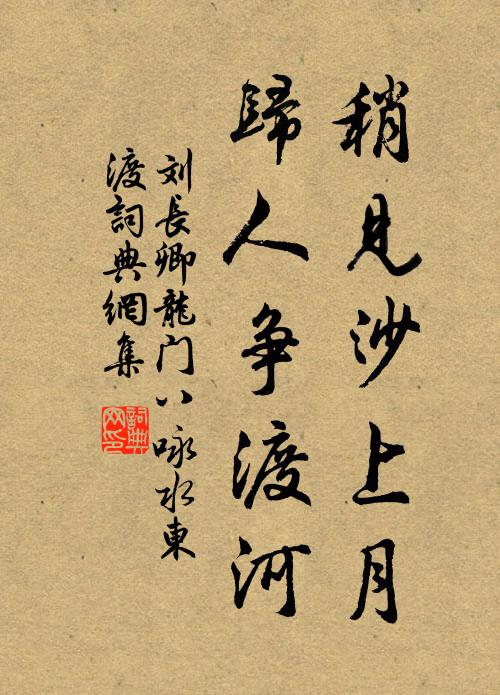 稍見沙上月
歸人争渡河
刘長卿龍门八咏水東
渡詞典網集
詞典
网印